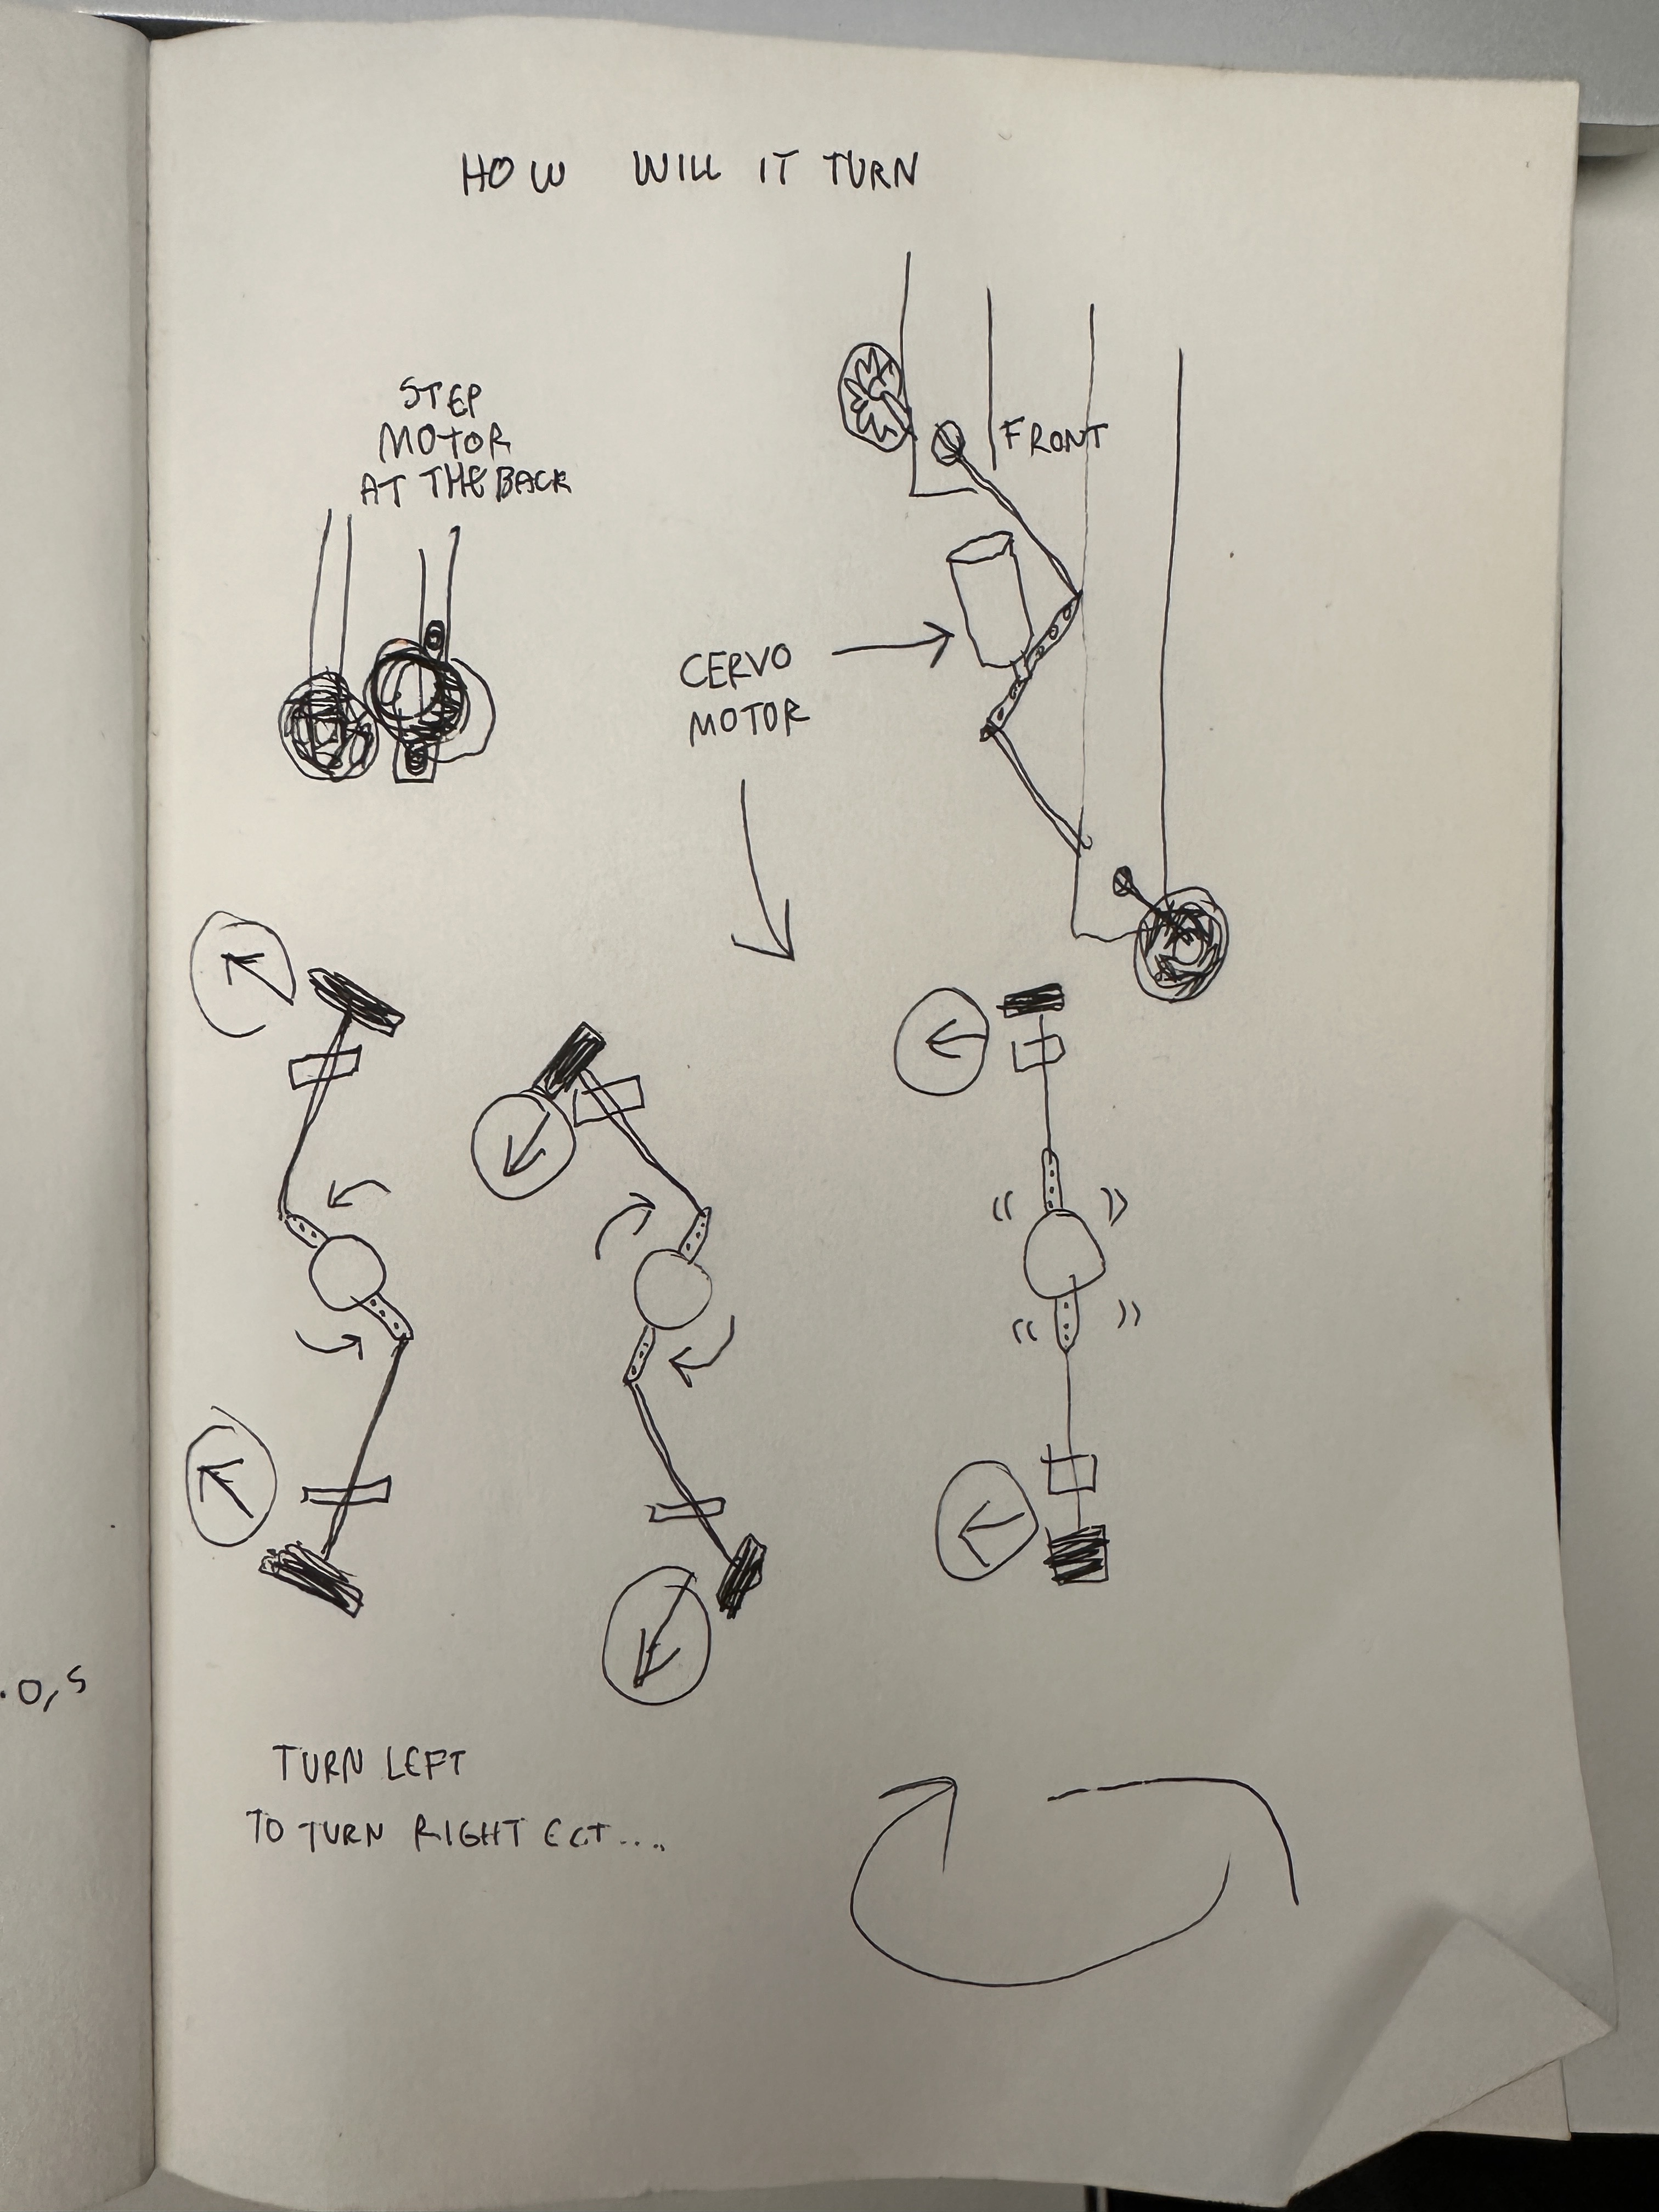 HOW WILL IT TURN
STEP
MOTOR
AT THE BACK
FRONT
CERVO
MOTOR
.0,5
TURN LEFT
TO TURN RIGHT ECT....